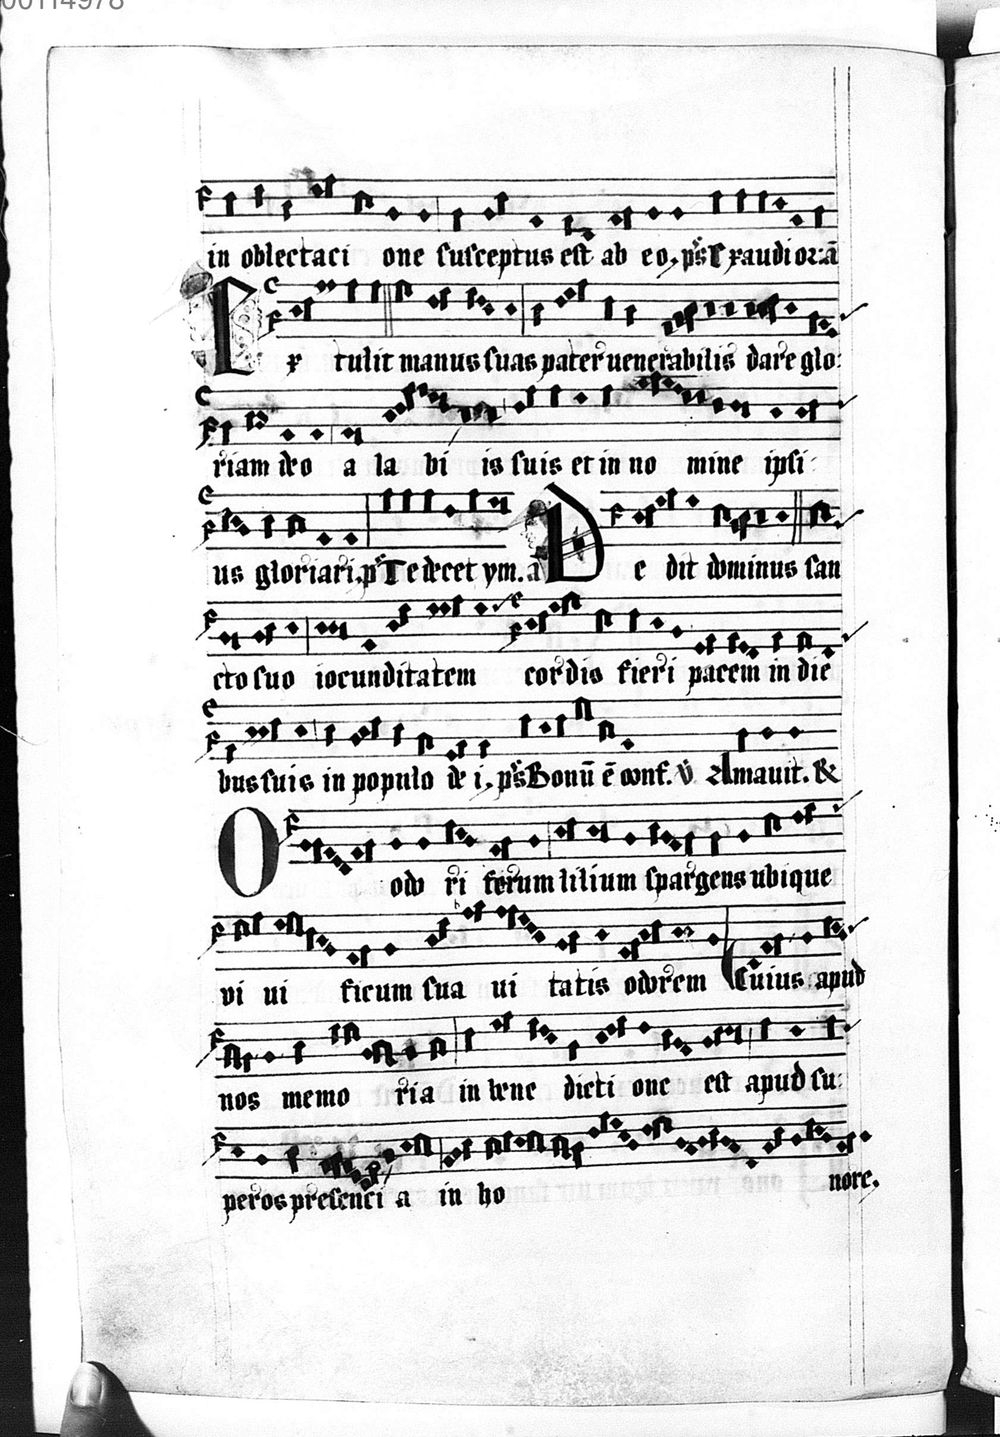 00114978
in oblectaci one susceptus est ab eo. ps̄ Exaudi orā
Ex tulit manus suas pater venerabilis dare glo
riam deo a la bi is suis et in no mine ipsi
us gloriari. ps̄ Te decet ym. a De dit dominus san
cto suo iocunditatem cordis fieri pacem in die
bus suis in populo de i. ps̄ Bonū ē conf. v̄ Amauit. &
O odo ri ferum lilium spargens ubique
vi ui ficum sua ui tatis odorem Cuius apud
nos memo ria in bene dicti one est apud su
peros presenci a in ho nore.